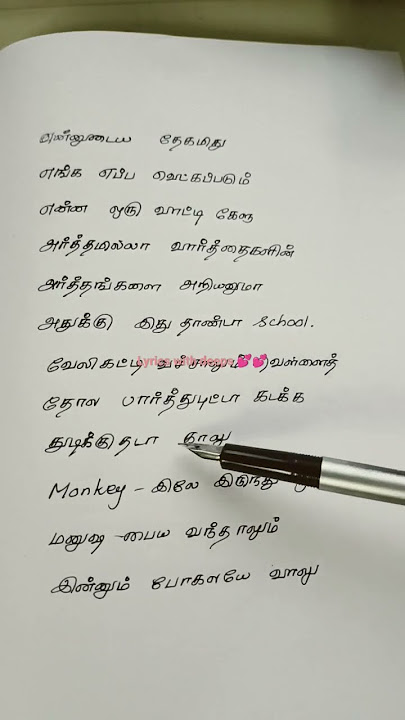 என்னுடைய தேகமிது
எங்க எப்ப வெட்கப்படும்
என்ன ஒரு வாட்டி கேளு
அர்த்தமில்லா வார்த்தைகளின்
அர்த்தங்களை அறியனுமா
அதுக்கு இது தாண்டா School.
வேலி கட்டி வச்சாலும் வெள்ளைத்
தோல பார்த்துபுட்டா கடக்க
துடிக்குதடா காலு
Monkey - கிலே இருந்து
மனுஷ பைய வந்தாலும்
இன்னும் போகலயே வாலு